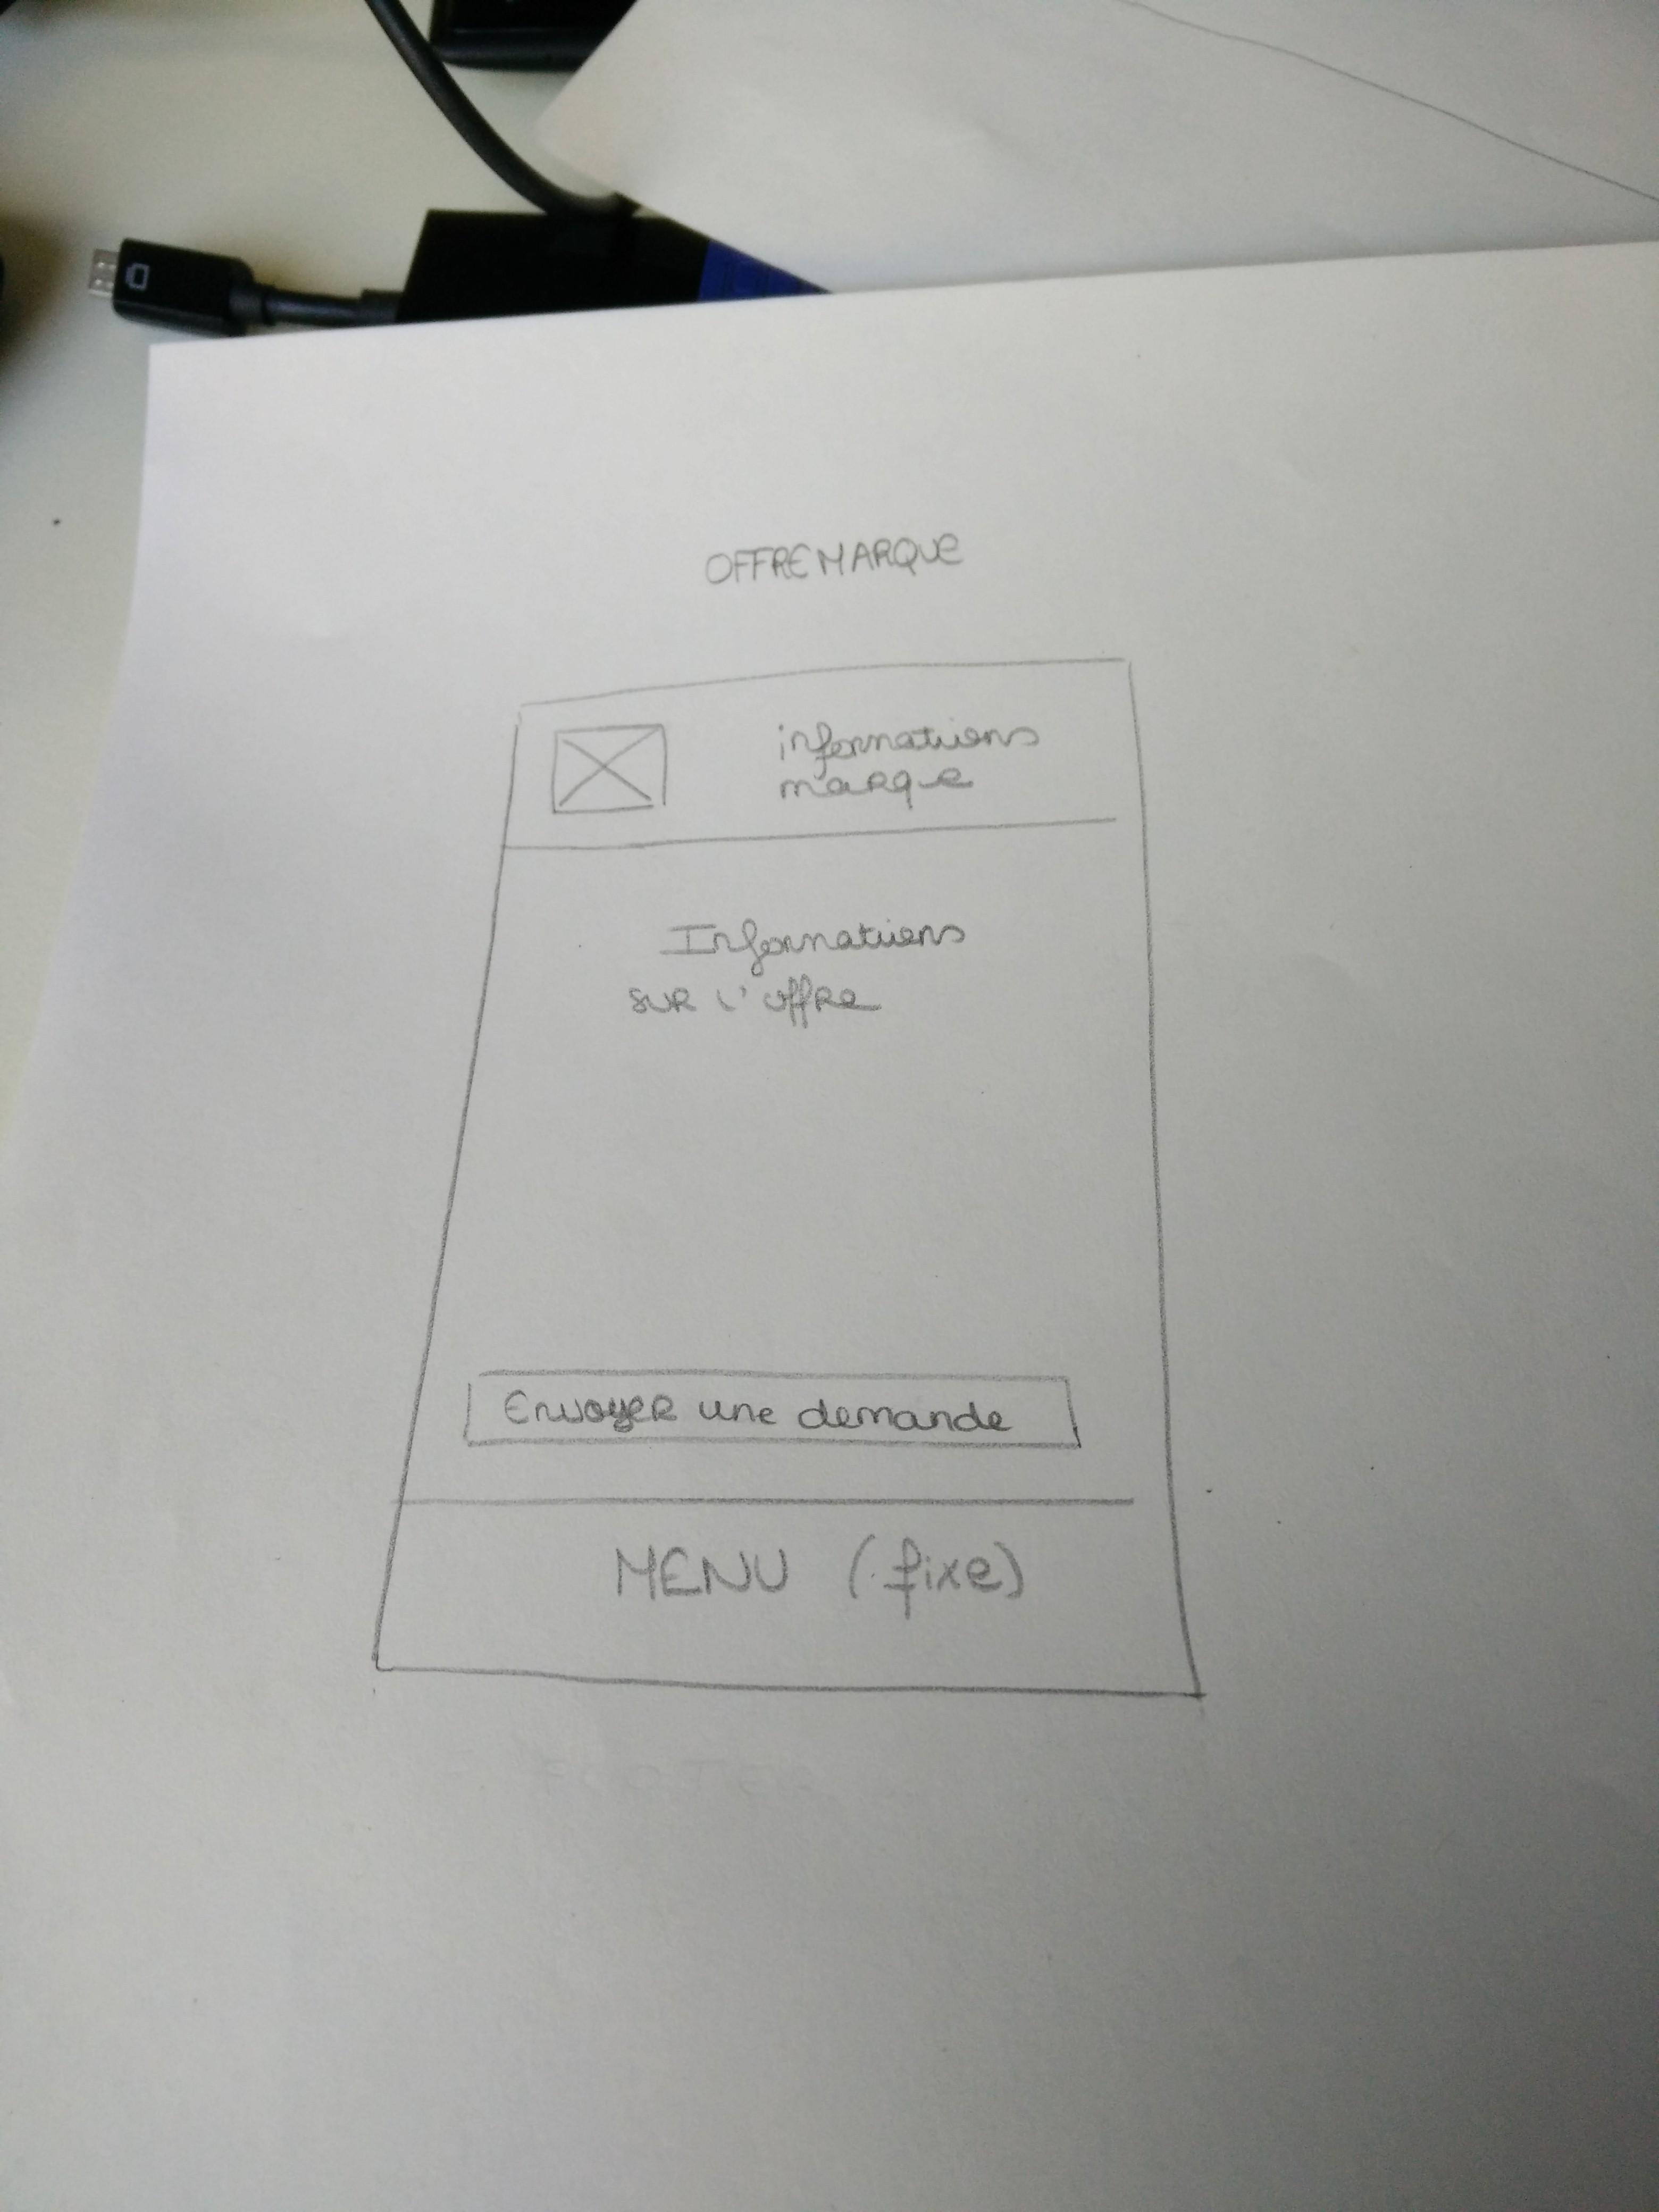 OFFRE MARQUE
informations
marque
Informations
sur l'offre
Envoyer une demande
MENU (fixe)